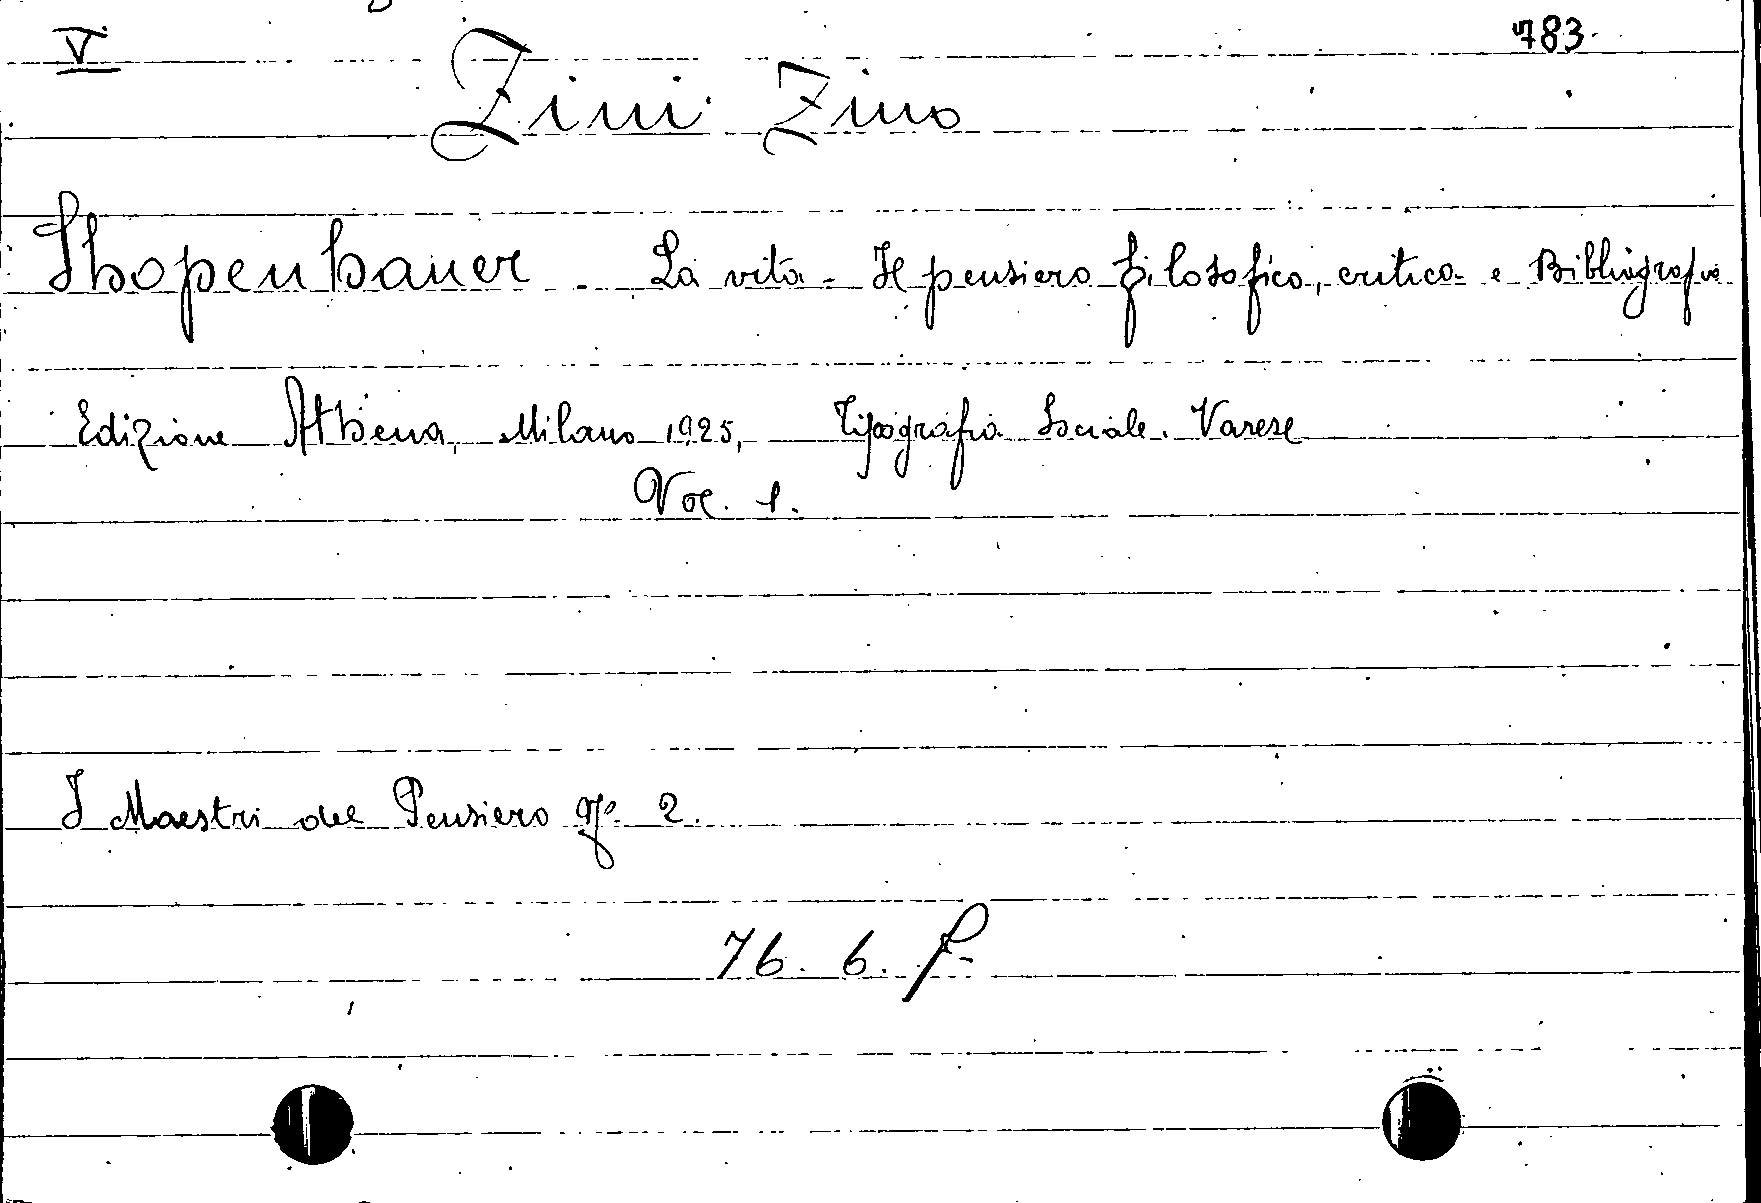 V 783
Zini Zino
Shopenhauer. La vita - Il pensiero filosofico, critica e Bibliografia
Edizione Athena, Milano 1925, Tipografia Sociale. Varese
Vol. 1.
I Maestri del Pensiero No. 2.
76. 6. f.